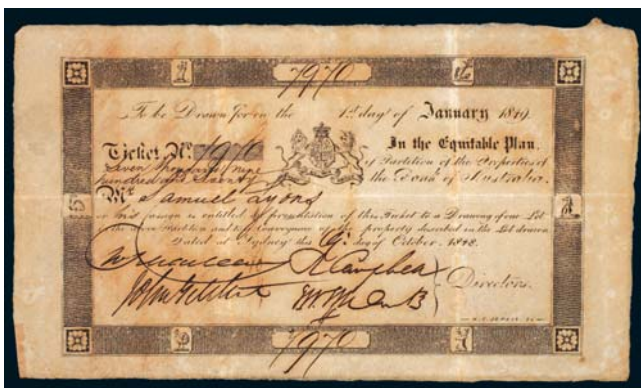 7970
To be Drawn for on the 1st day of January 1849.
Ticket No. 7970
In the Equitable Plan.
Seven thousand nine
of Partition of the Properties of
hundred and seventy
the Bank of Australia.
Mr. Samuel Lyons
or his Assign is entitled on presentation of this Ticket to a Drawing of one Lot
in the above Partition and to a Conveyance of the property described in the Lot drawn
Dated at Sydney this day of October. 1848.
Campbell
Directors.
7970